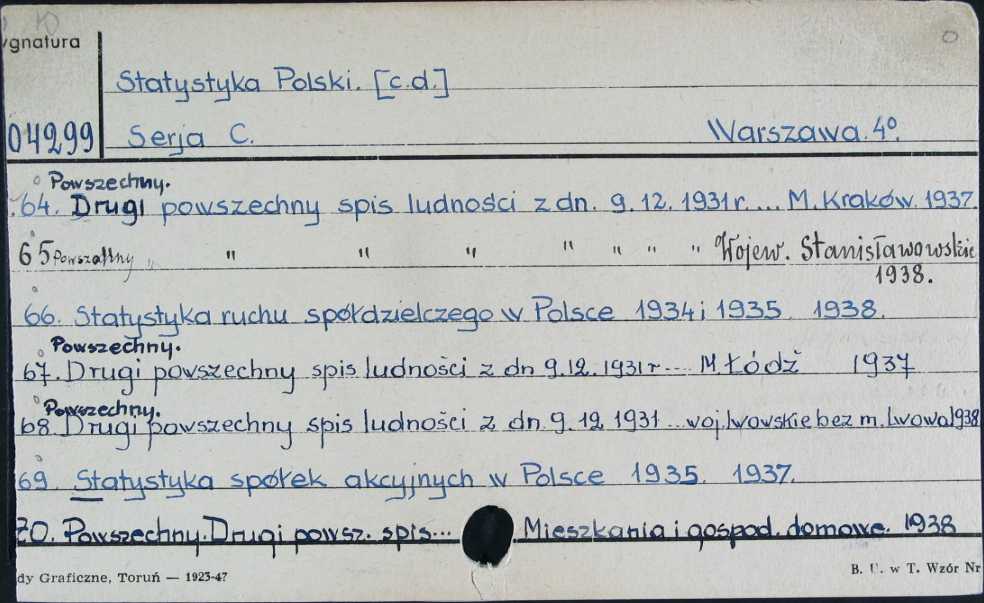 ygnatura
Statystyka Polski. [c.d.]
04299 Serja C. Warszawa. 4°.
Powszechny.
64. Drugi powszechny spis ludności z dn. 9.12. 1931 r.... M. Kraków. 1937.
65 Powszechny " " " " " " " " Wojew. Stanisławowskie
1938.
66. Statystyka ruchu spółdzielczego w Polsce 1934 i 1935. 1938.
Powszechny.
67. Drugi powszechny spis ludności z dn 9.12.1931 r.... M. Łódź 1937
Powszechny.
68. Drugi powszechny spis ludności z dn. 9.12. 1931 ... woj. lwowskie bez m. Lwowa 1938
69. Statystyka spółek akcyjnych w Polsce 1935. 1937.
70. Powszechny. Drugi powsz. spis... Mieszkania i gospod. domowe. 1938
dy Graficzne, Toruń — 1923-47
B. U. w T. Wzór Nr